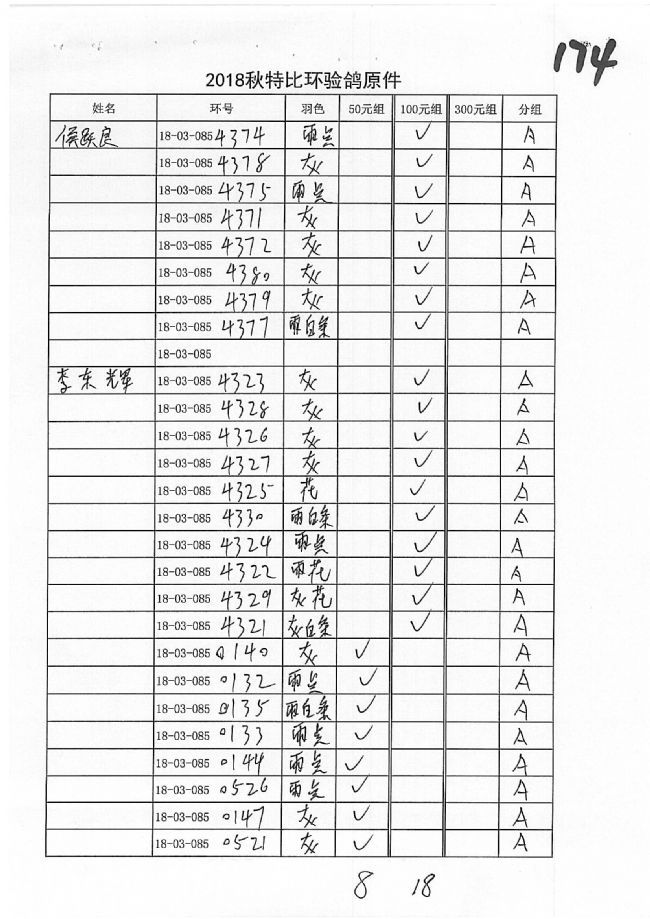 174
2018秋特比环验鸽原件
姓名 环号 羽色 50元组 100元组 300元组 分组
侯跃良 18-03-085 4374 雨点 ✓ A
18-03-085 4378 灰 ✓ A
18-03-085 4375 雨点 ✓ A
18-03-085 4371 灰 ✓ A
18-03-085 4372 灰 ✓ A
18-03-085 4380 灰 ✓ A
18-03-085 4379 灰 ✓ A
18-03-085 4377 雨白条 ✓ A
18-03-085
李东辉 18-03-085 4323 灰 ✓ A
18-03-085 4328 灰 ✓ A
18-03-085 4326 灰 ✓ A
18-03-085 4327 灰 ✓ A
18-03-085 4325 花 ✓ A
18-03-085 4330 雨白条 ✓ A
18-03-085 4324 雨点 ✓ A
18-03-085 4322 雨花 ✓ A
18-03-085 4329 灰花 ✓ A
18-03-085 4321 灰白条 ✓ A
18-03-085 0140 灰 ✓ A
18-03-085 0132 雨点 ✓ A
18-03-085 0135 雨白条 ✓ A
18-03-085 0133 雨点 ✓ A
18-03-085 0144 雨点 ✓ A
18-03-085 0526 雨点 ✓ A
18-03-085 0147 灰 ✓ A
18-03-085 0521 灰 ✓ A
8 18